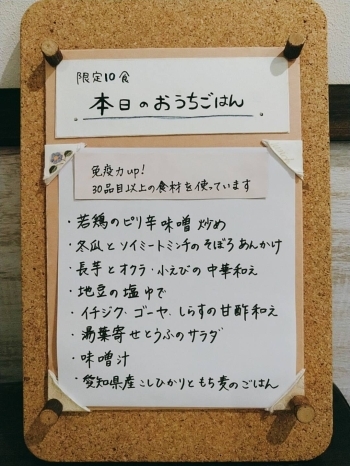 限定10食
本日のおうちごはん
免疫力up!
30品目以上の食材を使っています
・若鶏のピリ辛味噌炒め
・冬瓜とソイミートミンチのそぼろあんかけ
・長芋とオクラ・小えびの中華和え
・地豆の塩ゆで
・イチジク・ゴーヤ・しらすの甘酢和え
・湯葉寄せとうふのサラダ
・味噌汁
・愛知県産こしひかりともち麦のごはん